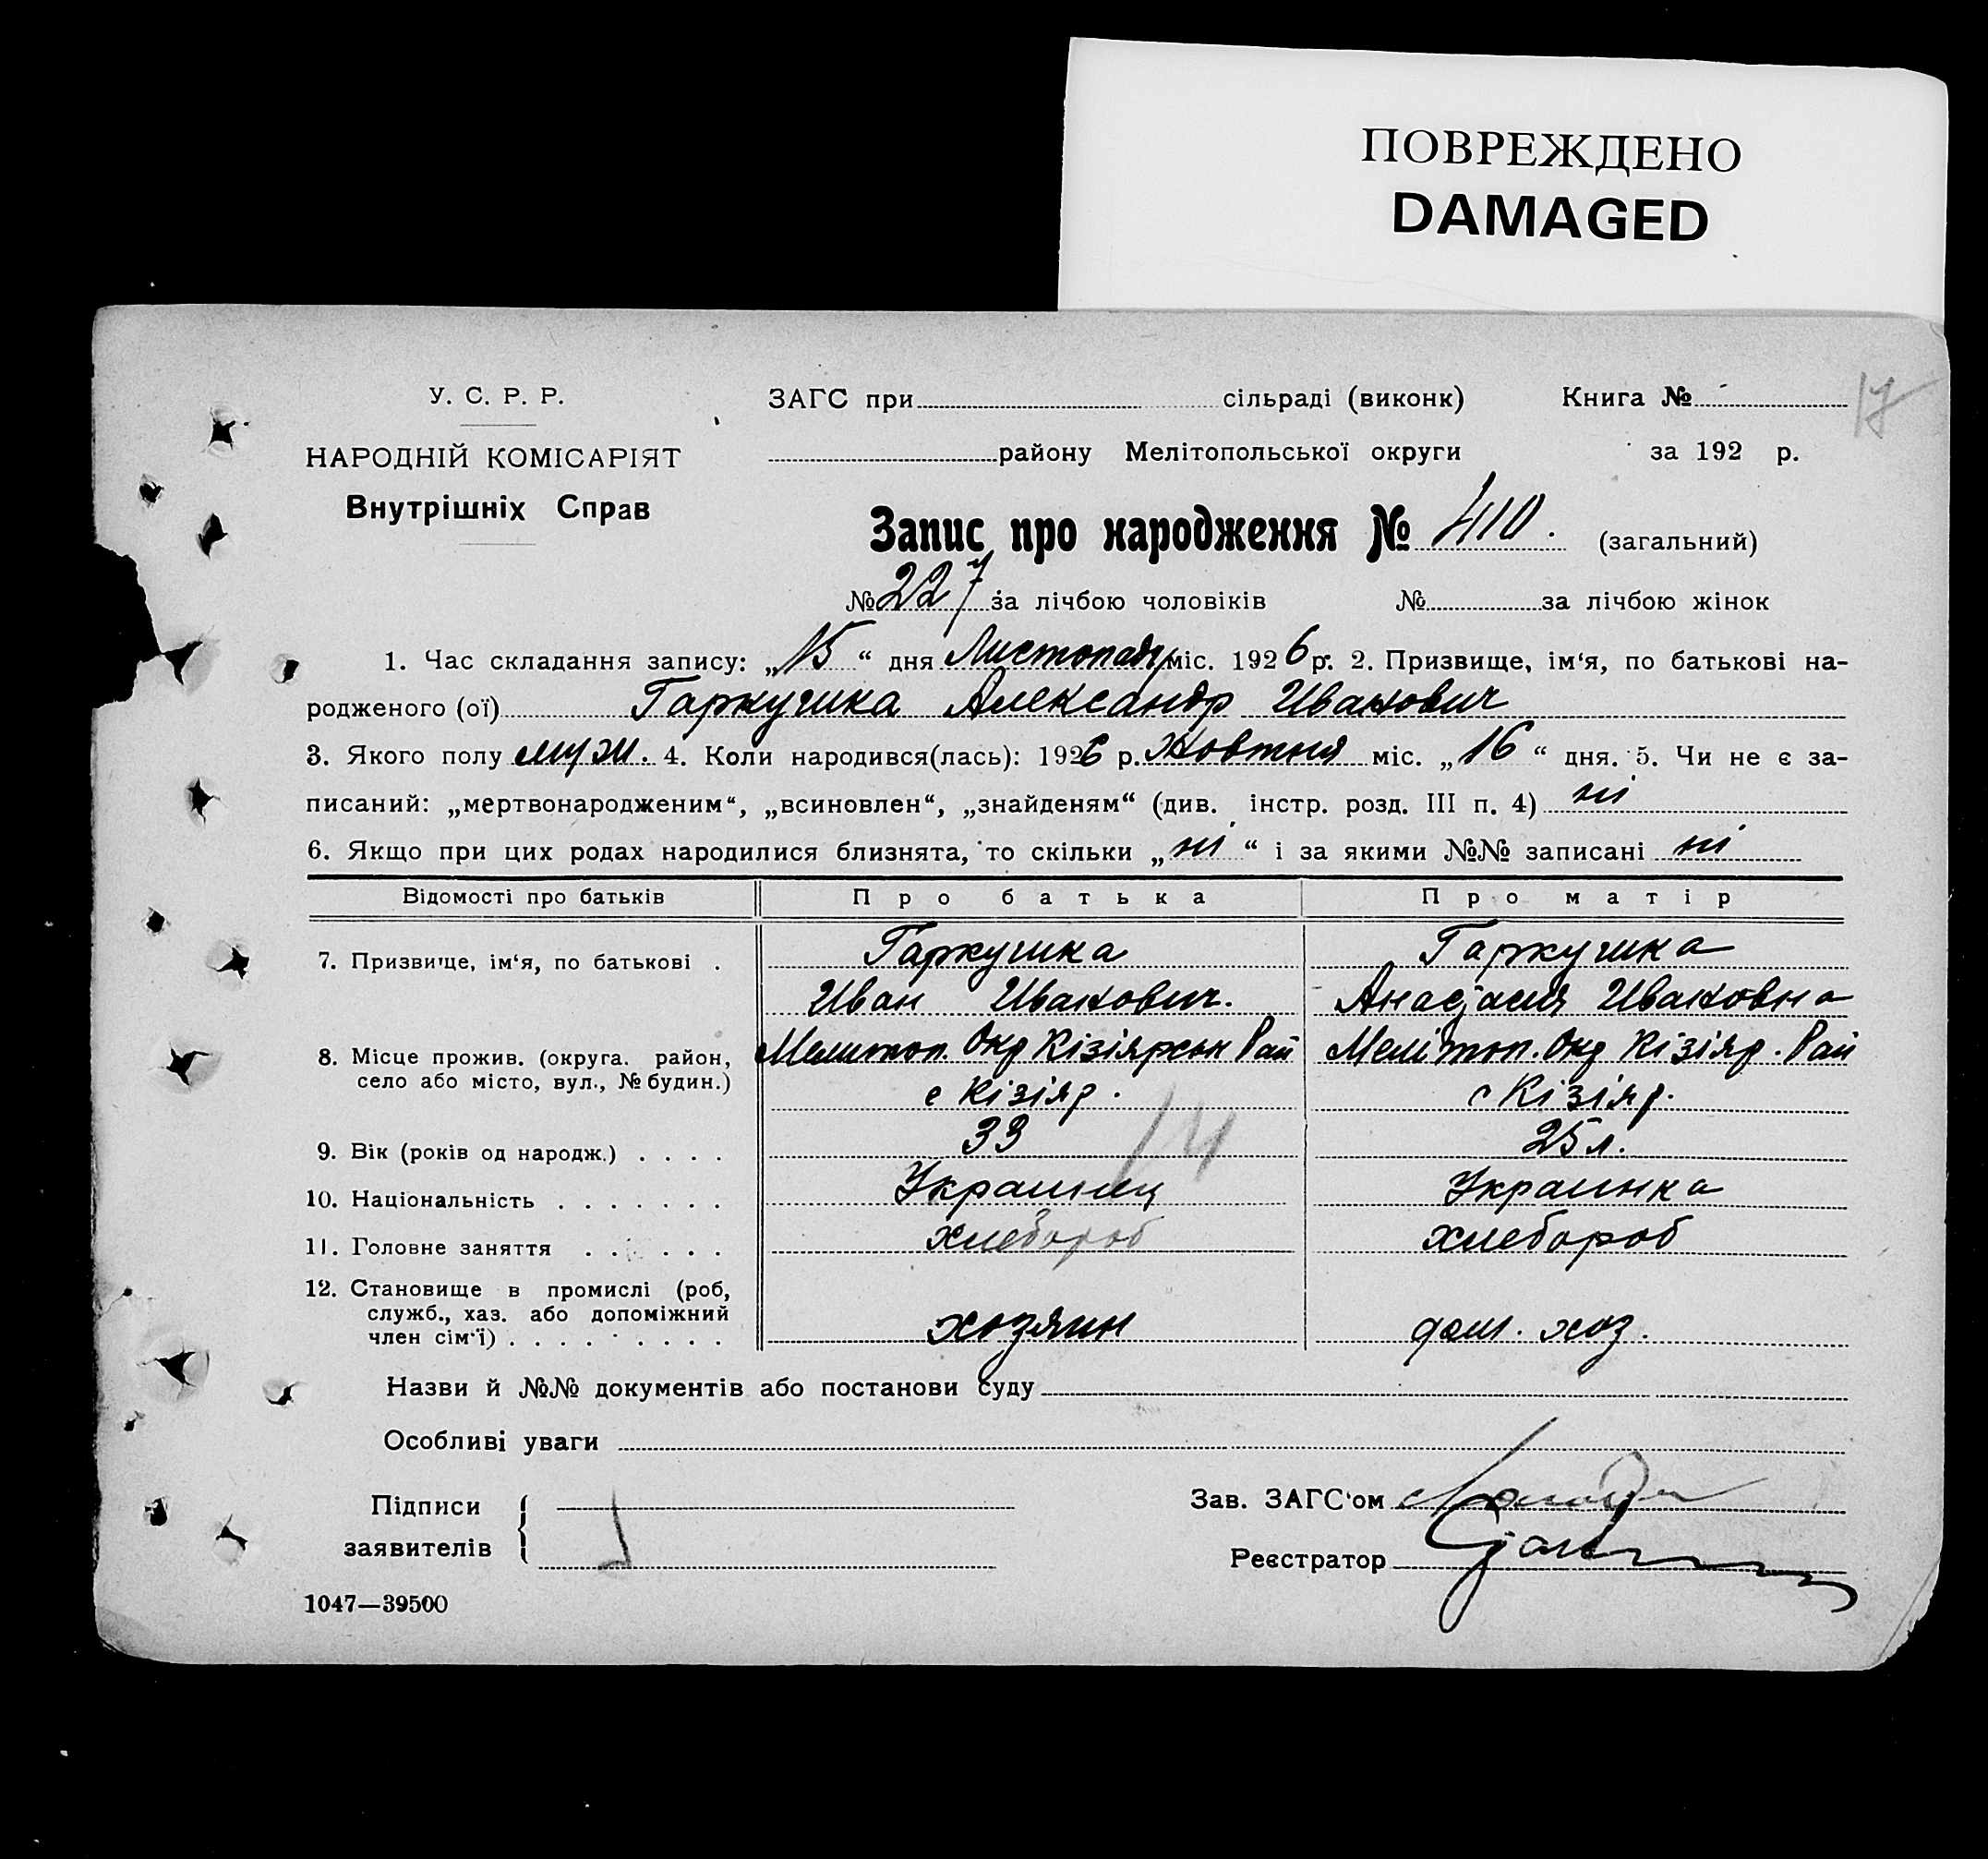 ПОВРЕЖДЕНО
DAMAGED
17
У. С. Р. Р.
НАРОДНІЙ КОМІСАРІЯТ
Внутрішніх Справ
ЗАГС при сільраді (виконк) Книга №
району Мелітопольської округи за 192 р.
Запис про народження № 410. (загальний)
№ 227 за лічбою чоловіків № за лічбою жінок
1. Час складання запису: „15“ дня Листопада міс. 1926 р. 2. Призвище, ім‘я, по батькові на-
родженого (ої) Гаркушка Александр Иванович
3. Якого полу муж. 4. Коли народився(лась): 1926 р. Жовтня міс. „16“ дня. 5. Чи не є за-
писаний: „мертвонародженим“, „всиновлен“, „знайденям“ (див. інстр. розд. III п. 4) ні
6. Якщо при цих родах народилися близнята, то скільки „ні“ і за якими №№ записані ні
Відомості про батьків Про батька Про матір
7. Призвище, ім‘я, по батькові . Гаркушка Гаркушка
Иван Иванович. Анастасия Ивановна
8. Місце прожив. (округа. район, Мелитоп. Окр Кізіярськ Рай Мелітоп. Окр Кізіяр. Рай
село або місто, вул., № будин.) с Кізіяр. с Кізіяр.
9. Вік (років од народж.) . . . . 33 25 л.
14
10. Національність . . . . . . . Украинец Украинка
11. Головне заняття . . . . . . хлебороб хлебороб
12. Становище в промислі (роб,
служб., хаз. або допоміжний
член сім‘ї) . . . . . . . . хозяин дом. хоз.
Назви й №№ документів або постанови суду
Особливі уваги
Підписи
заявителів
Зав. ЗАГС‘ом
Реєстратор
1047—39500